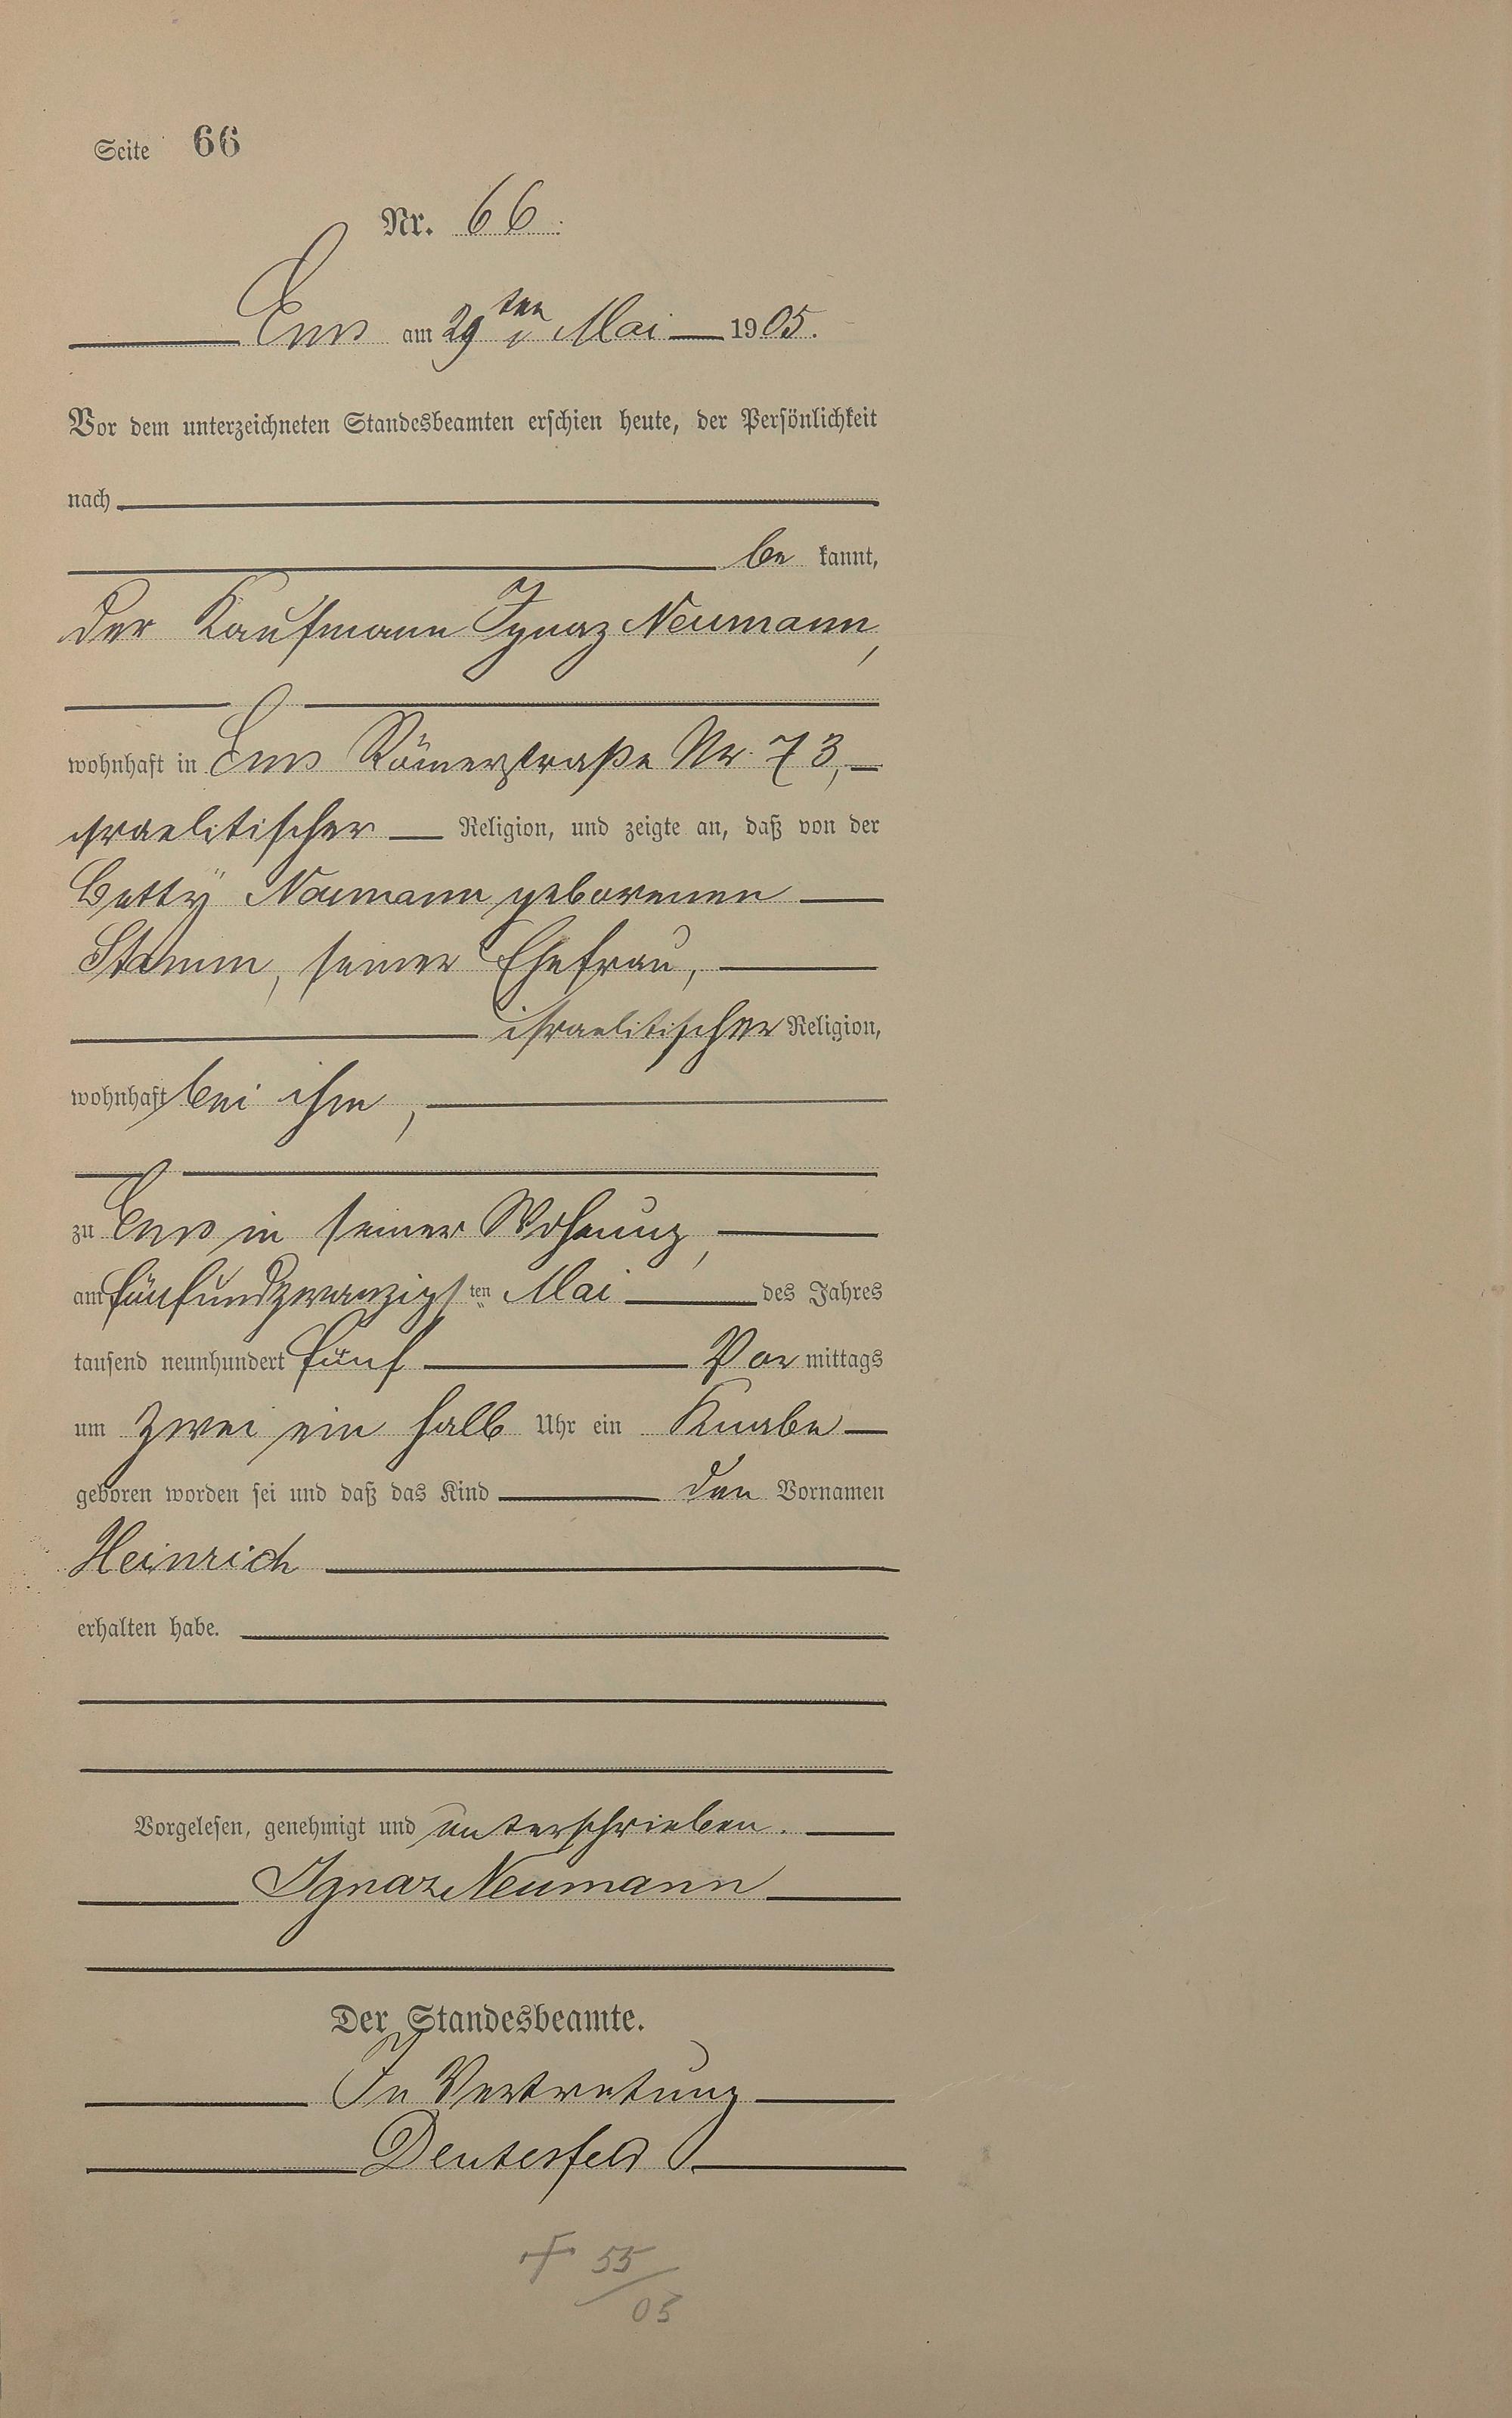 Seite 66
Nr. 66.
Ems am 29ten Mai 1905.
Vor dem unterzeichneten Standesbeamten erschien heute, der Persönlichkeit
nach
be kannt,
der Kaufmann Ignaz Neumann,
wohnhaft in Ems Römerstraße Nr. 73,
israelitischer Religion, und zeigte an, daß von der
Betty Neumann geborenen
Stamm, seiner Ehefrau,
israelitischer Religion,
wohnhaft bei ihm,
zu Ems in seiner Wohnung,
am fünfundzwanzigsten Mai des Jahres
tausend neunhundert fünf Vor mittags
um zwei ein halb Uhr ein Knabe
geboren worden sei und daß das Kind den Vornamen
Heinrich
erhalten habe.
Vorgelesen, genehmigt und unterschrieben.
Ignaz Neumann
Der Standesbeamte.
In Vertretung
55/05